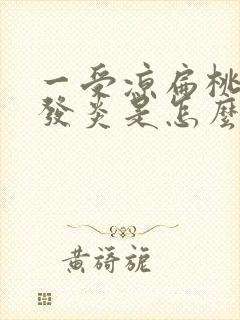 一受凉扁桃
發炎是怎麼
黃蒟旎